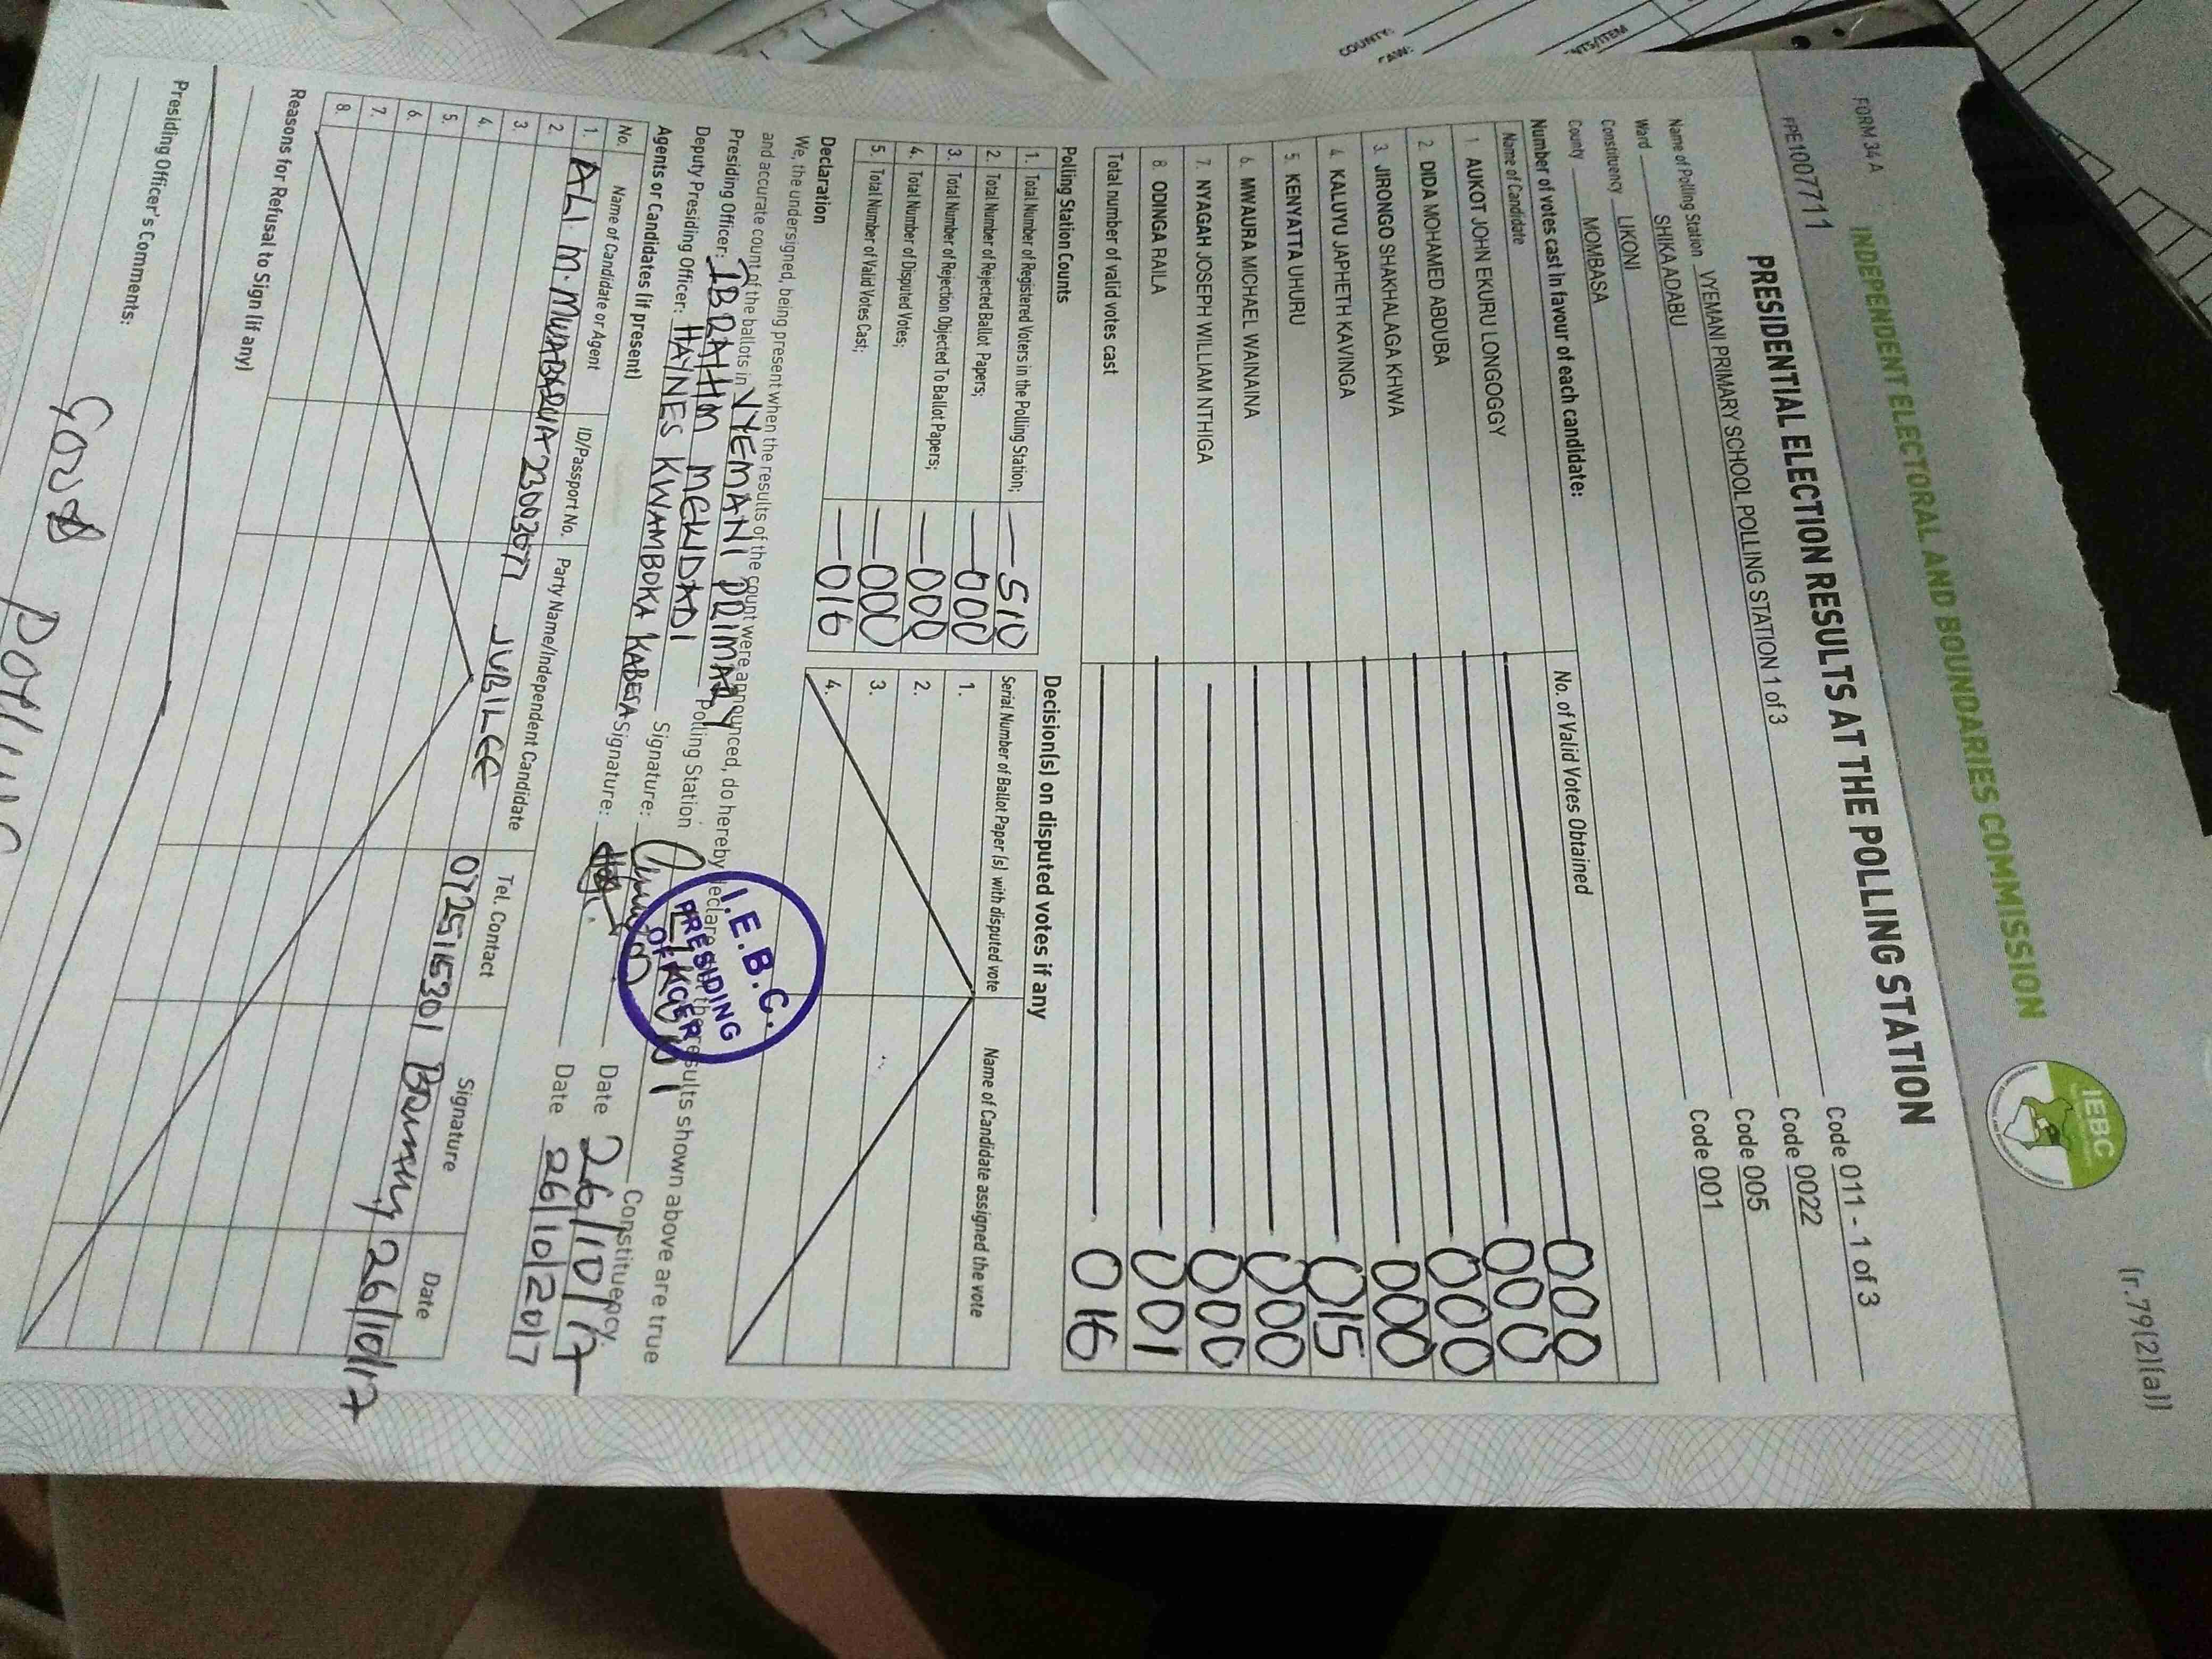 COUNTY:
NTS/ITEM
(r.79(2)(a))
IEBC
INDEPENDENT ELECTORAL AND BOUNDARIES COMMISSION
FORM 34A
PRESIDENTIAL ELECTION RESULTS AT THE POLLING STATION
FPE1007711
Name of Polling Station VYEMANI PRIMARY SCHOOL POLLING STATION 1 of 3 Code 011 - 1 of 3
Ward SHIKA ADABU Code 0022
Constituency LIKONI Code 005
County MOMBASA Code 001
Number of votes cast in favour of each candidate:
Name of Candidate No. of Valid Votes Obtained
1. AUKOT JOHN EKURU LONGOGGY 000
2. DIDA MOHAMED ABDUBA 000
3. JIRONGO SHAKHALAGA KHWA 000
4. KALUYU JAPHETH KAVINGA 000
5. KENYATTA UHURU 015
6. MWAURA MICHAEL WAINAINA 000
7. NYAGAH JOSEPH WILLIAM NTHIGA 000
8. ODINGA RAILA 001
Total number of valid votes cast 016
Polling Station Counts
1. Total Number of Registered Voters in the Polling Station; 510
2. Total Number of Rejected Ballot Papers; 000
3. Total Number of Rejection Objected To Ballot Papers; 000
4. Total Number of Disputed Votes; 000
5. Total Number of Valid Votes Cast; 016
Decision(s) on disputed votes if any
Serial Number of Ballot Paper (s) with disputed vote Name of Candidate assigned the vote
1.
2.
3.
4.
Declaration
We, the undersigned, being present when the results of the count were announced, do hereby declare that the results shown above are true
and accurate count of the ballots in VYEMANI PRIMARY Polling Station LIKONI Constituency.
Presiding Officer: IBRAHIM MEKIDADI Signature: Date 26/10/17
Deputy Presiding Officer: HAYNES KWAMBOKA KABESA Signature: Date 26/10/2017
I.E.B.C.
PRESIDING
OFFICER
Agents or Candidates (if present)
No. Name of Candidate or Agent ID/Passport No. Party Name/Independent Candidate Tel. Contact Signature Date
1. ALI M. MWABARUA 23003077 JUBILEE 0725116301 26/10/17
2.
3.
4.
5.
6.
7.
8.
Reasons for Refusal to Sign (if any)
Presiding Officer's Comments:
Good